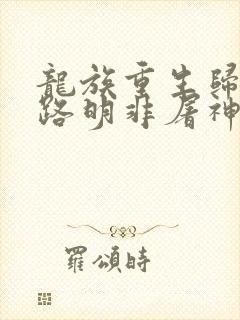 龍族重生歸
路明非屠神
羅頌時